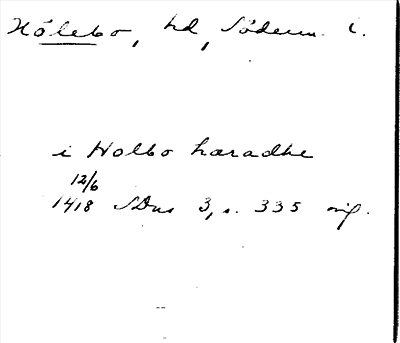 Hölebo, hd, Söderm. l.
i Holbo haradhe
12/6
1418 SDns 3, s. 335 orig.